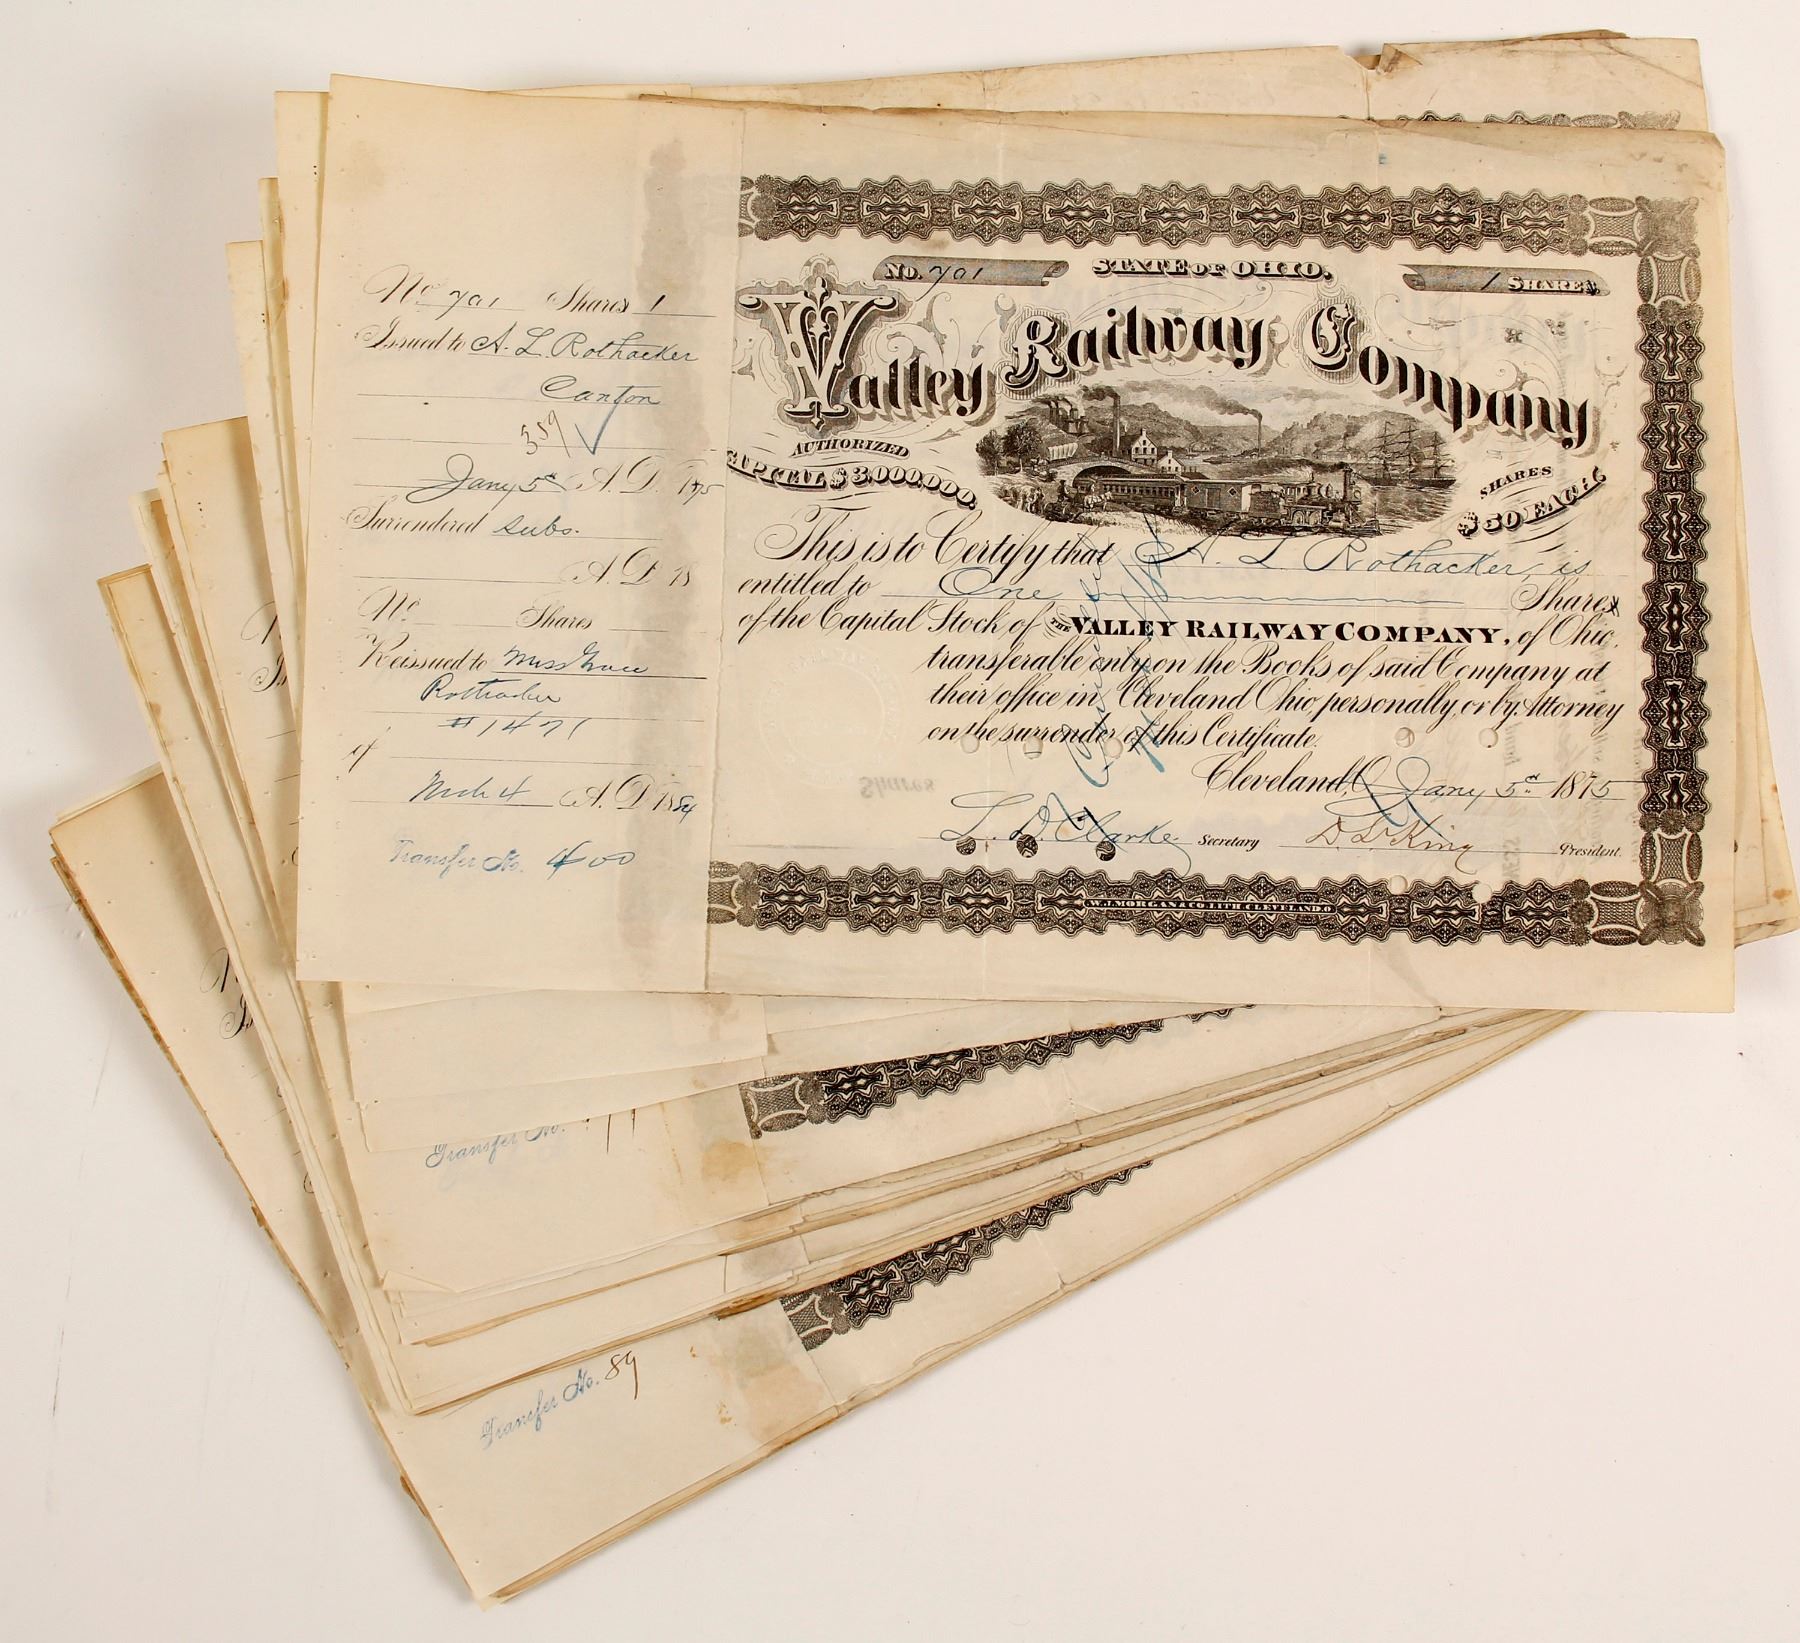 No 791 Shares 1
Issued to A. L. Rothacker
Canton
359 ✓
Jany 5th A.D. 1875
Surrendered subs.
A.D. 18
No. Shares
Reissued to Miss Grace
Rothacker
#1471
of
Mch 4 A.D. 1884
Transfer No. 400
No. 791
STATE OF OHIO,
1 SHARES.
Valley Railway Company
AUTHORIZED
CAPITAL $3,000,000.
SHARES
$50 EACH
This is to Certify that A. L. Rothacker, is
entitled to One Shares
of the Capital Stock of THE VALLEY RAILWAY COMPANY, of Ohio,
transferable only on the Books of said Company at
their office in Cleveland Ohio, personally, or by Attorney
on the surrender of this Certificate.
Cancelled
Shares
Cleveland, O. Jany 5th 1875
L. D. Clarke Secretary D. L. King President.
W.J.MORGAN & CO. LITH. CLEVELAND.O
Transfer No.
Transfer No. 89